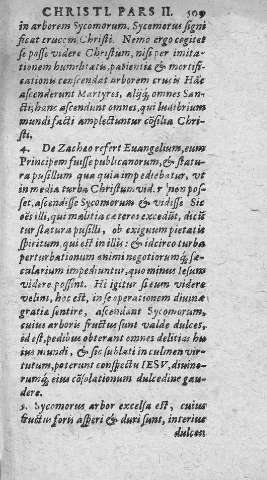 CHRISTI. PARS II. 509
in arborem Sycomorum, Sycomorus signi
ficat crucem Christi. Nemo ergo cogitet
se posse videre Christum, nisi per imita-
tionem humilitatis, patientiæ & mortifi-
cationis conscendat arborem crucis Hāc
ascenderunt Martyres, aliq́; omnes San-
cti, hanc ascendunt omnes, qui ludibrium
mundi facti amplectuntur cōsilia Chri-
sti.
4. De Zachæo refert Euangelium, eum
Principem fuisse publicanorum, & statu
ra pusillum qua quia impediebatur, vt
in media turba Christum videre non pos-
set, ascendisse Sycomorum & vidisse Sic
oēs illi, qui malitia cæteros excedūt, dicūt
tur statura pusilli, ob exiguum pietatis
spiritum, qui est in illis: & idcirco turba
perturbationum animi negotiorumq́; sæ-
cularium impediuntur, quo minus Iesum
videre possint. Hi igitur si eum videre
velint, hoc est, in se operationem diuinæ
gratiæ sentire, ascendant Sycomorum,
cuius arboris fructus sunt valde dulces,
id est, pedibus obterant omnes delitias hu
ius mundi, & sic sublati in culmen vir-
tutum, poterunt conspectu IESV, diuino-
rumq́; eius cōsolationum dulcedine gau-
dere.
5. Sycomorus arbor excelsa est, cuius
fructus foris asperi & duri sunt, interius
dulces